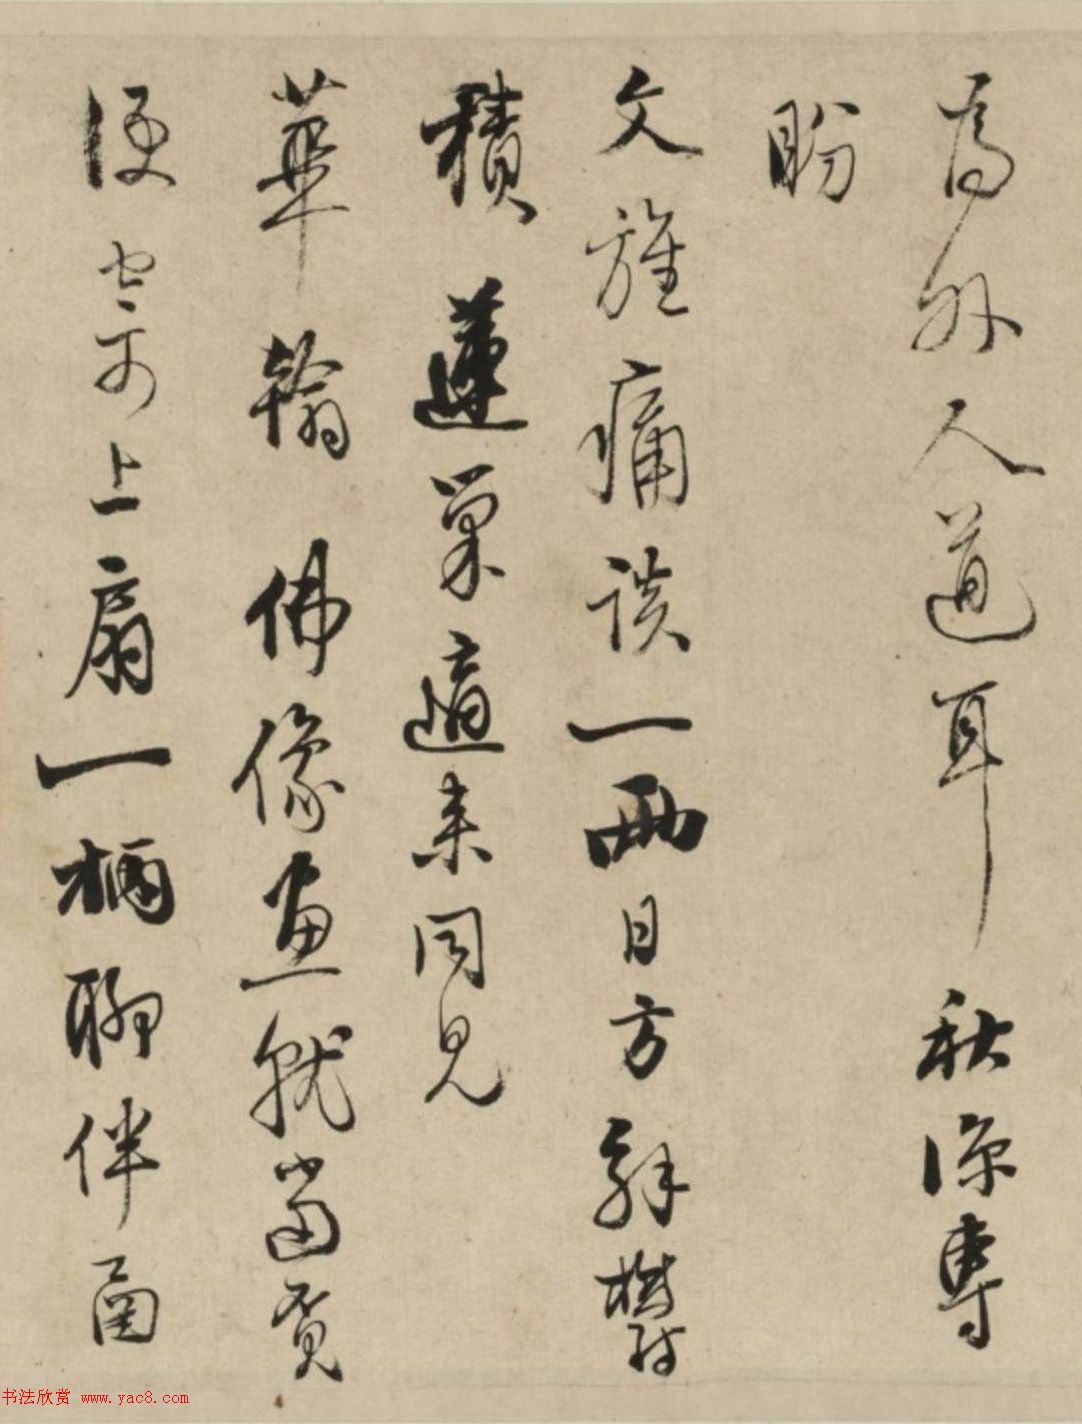 為外人道耳秋涼專
盼
文旌痛談一兩日方解鬱
積蓮巢適來同見
華翰佛像畫就當覓
便寄上扇一柄聊伴
书法欣赏 www.yac8.com